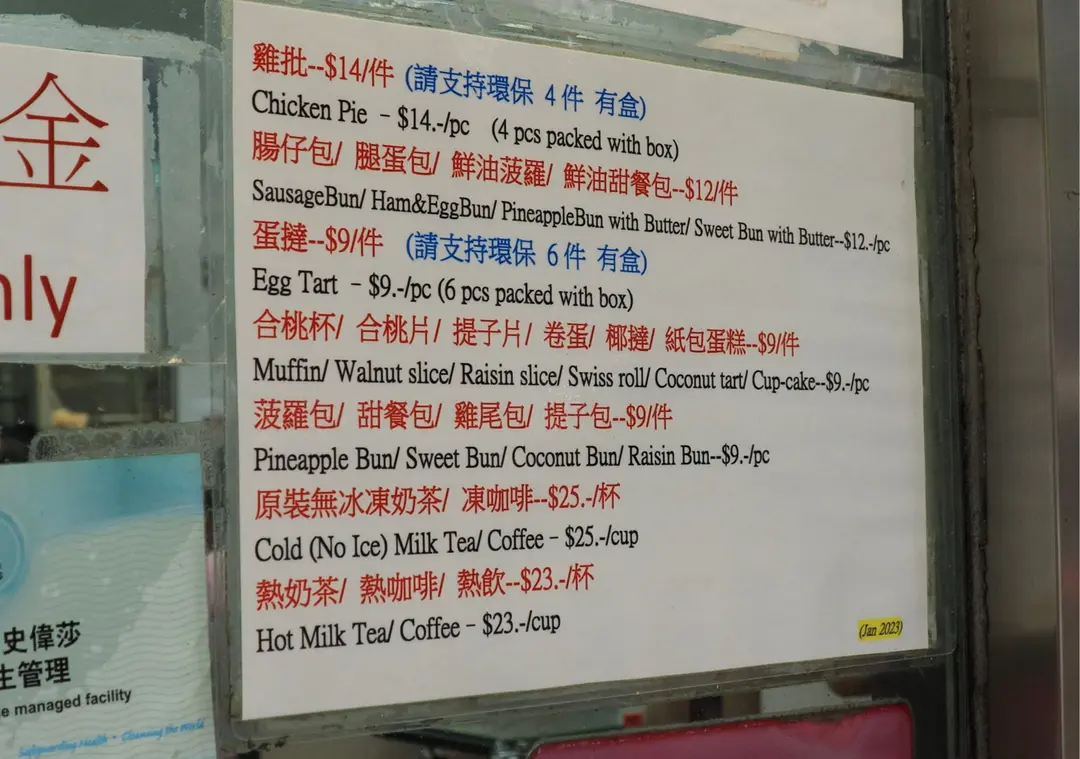 金
nly
雞批--$14/件 (請支持環保 4件 有盒)
Chicken Pie – $14.-/pc (4 pcs packed with box)
腸仔包/ 腿蛋包/ 鮮油菠羅/ 鮮油甜餐包--$12/件
SausageBun/ Ham&EggBun/ PineappleBun with Butter/ Sweet Bun with Butter--$12.-/pc
蛋撻--$9/件 (請支持環保 6件 有盒)
Egg Tart – $9.-/pc (6 pcs packed with box)
合桃杯/ 合桃片/ 提子片/ 卷蛋/ 椰撻/ 紙包蛋糕--$9/件
Muffin/ Walnut slice/ Raisin slice/ Swiss roll/ Coconut tart/ Cup-cake--$9.-/pc
菠羅包/ 甜餐包/ 雞尾包/ 提子包--$9/件
Pineapple Bun/ Sweet Bun/ Coconut Bun/ Raisin Bun--$9.-/pc
原裝無冰凍奶茶/ 凍咖啡--$25.-/杯
Cold (No Ice) Milk Tea/ Coffee – $25.-/cup
熱奶茶/ 熱咖啡/ 熱飲--$23.-/杯
Hot Milk Tea/ Coffee – $23.-/cup
(Jan 2023)
史偉莎
生管理
e managed facility
Safeguarding Health • Cleansing the World